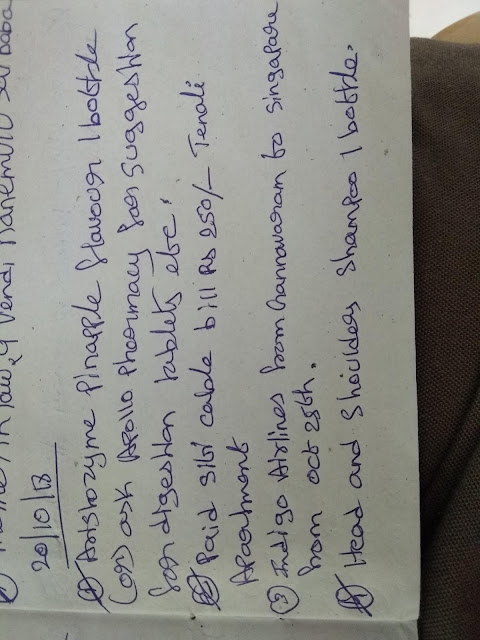 in law, 4 Vendi
20/10/18
① Aristozyme Pinapple flavour 1 bottle
(or) ask Apollo pharmacy for suggestion
for digestion tablets etc.
② Paid siti cable bill Rs 250/- Tenali
Apartment
③ Indigo Airlines from Gannavaram to Singapore
from oct 25th.
④ Head and Shoulders Shampoo 1 bottle.